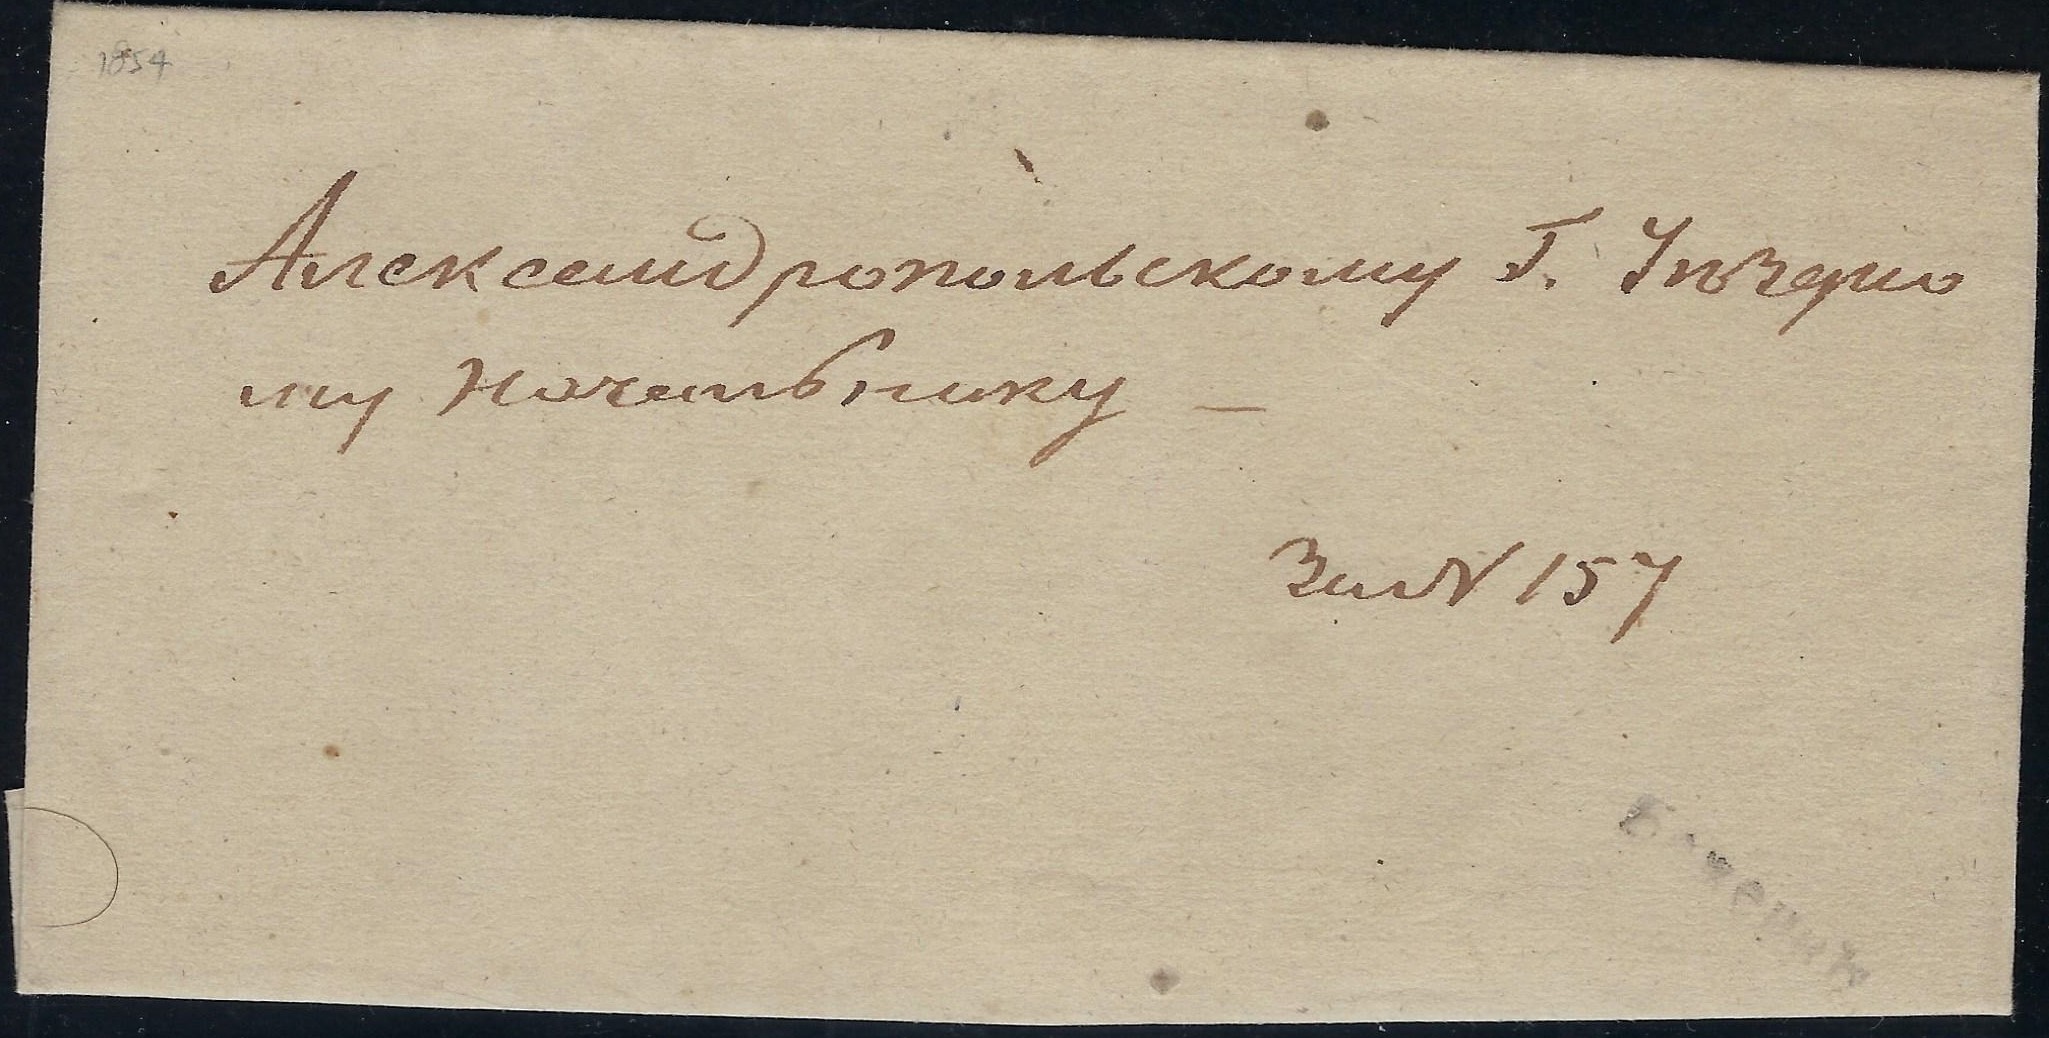 1854
Александропольскому Г. Уѣздно
му Начальнику —
За № 157